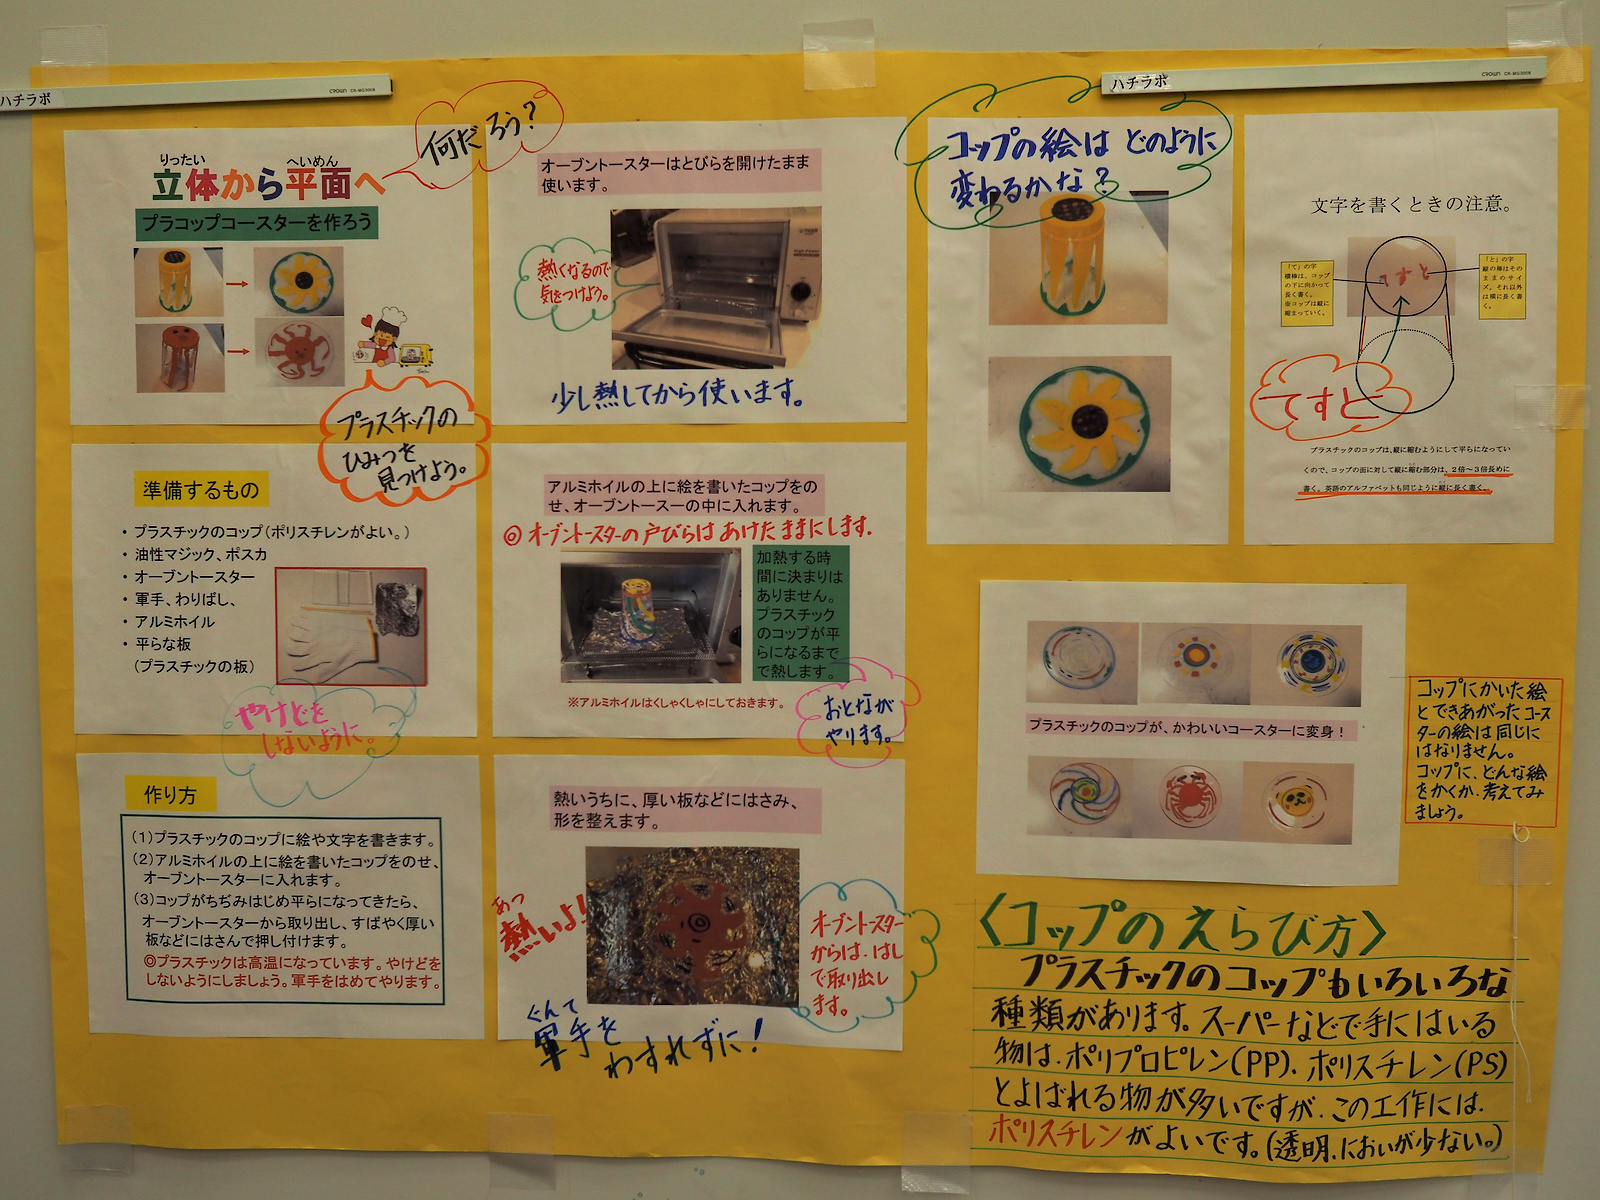 ハチラボ
CROWN CR-MG300B
ハチラボ
CROWN CR-MG300B
何だろう?
りったい へいめん
立体から平面へ
プラコップコースターを作ろう
プラスチックの
ひみつを
見つけよう。
準備するもの
・ プラスチックのコップ(ポリスチレンがよい。)
・ 油性マジック、ポスカ
・ オーブントースター
・ 軍手、わりばし、
・ アルミホイル
・ 平らな板
(プラスチックの板)
やけどを
しないように。
作り方
(1)プラスチックのコップに絵や文字を書きます。
(2)アルミホイルの上に絵を書いたコップをのせ、
オーブントースターに入れます。
(3)コップがちぢみはじめ平らになってきたら、
オーブントースターから取り出し、すばやく厚い
板などにはさんで押し付けます。
◎プラスチックは高温になっています。やけどを
しないようにしましょう。軍手をはめてやります。
オーブントースターはとびらを開けたまま
使います。
熱くなるので
気をつけよう。
少し熱してから使います。
アルミホイルの上に絵を書いたコップをの
せ、オーブントースーの中に入れます。
◎オーブントースターの戸びらはあけたままにします.
加熱する時
間に決まりは
ありません。
プラスチック
のコップが平
らになるまで
で熱します。
※アルミホイルはくしゃくしゃにしておきます。
おとなが
やります。
熱いうちに、厚い板などにはさみ、
形を整えます。
あつ
熱いよ!
オーブントースター
からは、はし
で取り出し
ます。
ぐんて
軍手を
わすれずに!
コップの絵は どのように
変わるかな?
文字を書くときの注意。
「て」の字
横棒は、コップ
の下に向かって
長く書く。
※コップは縦に
縮まっていく。
「と」の字
縦の棒はその
ままのサイ
ズ。それ以外
は横に長く書
く。
てすと
てすと
プラスチックのコップは、縦に縮むようにして平らになってい
くので、コップの面に対して縦に縮む部分は、2倍~3倍長めに
書く。英語のアルファベットも同じように縦に長く書く。
プラスチックのコップが、かわいいコースターに変身!
コップにかいた絵
とできあがったコース
ターの絵は同じに
はなりません。
コップに、どんな絵
をかくか、考えてみ
ましょう。
〈コップのえらび方〉
プラスチックのコップもいろいろな
種類があります。スーパーなどで手にはいる
物は、ポリプロピレン(PP)、ポリスチレン(PS)
とよばれる物が多いですが、この工作には、
ポリスチレンがよいです。(透明、においが少ない。)